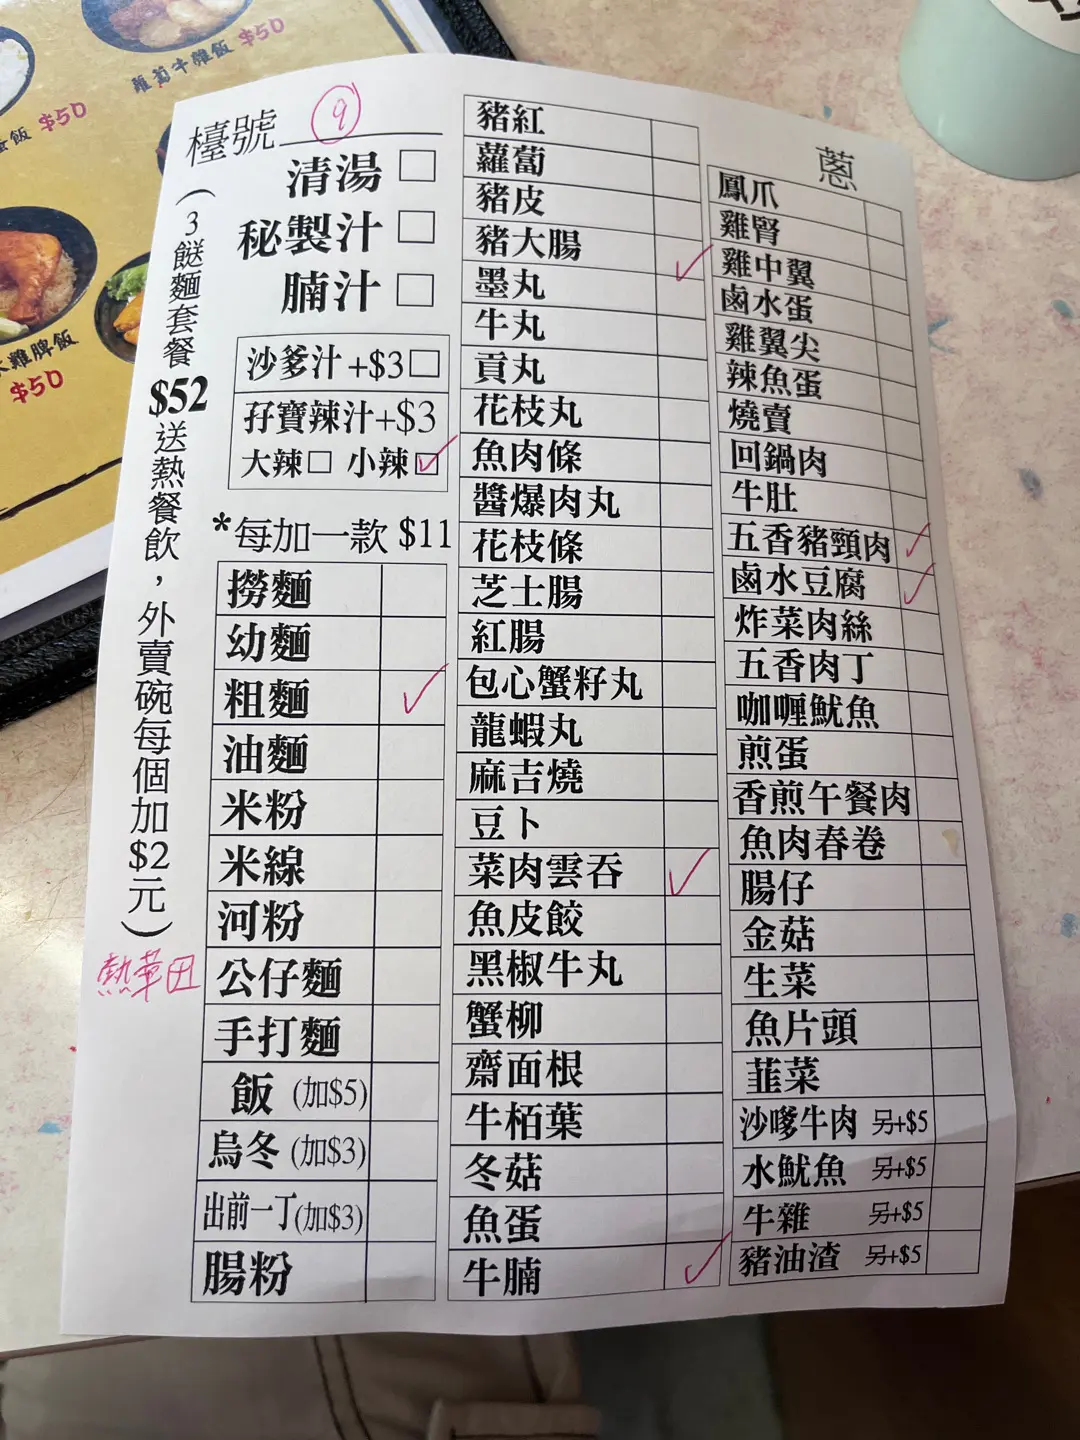 蘿蔔牛雜飯 $50
飯 $50
雞髀飯
$50
檯號 9
清湯 □
秘製汁 □
腩汁 □
沙爹汁 +$3 □
孖寶辣汁+$3
大辣 □ 小辣 ☑
*每加一款 $11
(3餸麵套餐 $52 送熱餐飲，外賣碗每個加$2元)
熱華田
撈麵
幼麵
粗麵 ✓
油麵
米粉
米線
河粉
公仔麵
手打麵
飯 (加$5)
烏冬 (加$3)
出前一丁(加$3)
腸粉
豬紅
蘿蔔
豬皮
豬大腸 ✓
墨丸
牛丸
貢丸
花枝丸
魚肉條
醬爆肉丸
花枝條
芝士腸
紅腸
包心蟹籽丸
龍蝦丸
麻吉燒
豆卜
菜肉雲吞 ✓
魚皮餃
黑椒牛丸
蟹柳
齋面根
牛栢葉
冬菇
魚蛋
牛腩 ✓
蔥
鳳爪
雞腎
雞中翼
鹵水蛋
雞翼尖
辣魚蛋
燒賣
回鍋肉
牛肚
五香豬頸肉 ✓
鹵水豆腐 ✓
炸菜肉絲
五香肉丁
咖喱魷魚
煎蛋
香煎午餐肉
魚肉春卷
腸仔
金菇
生菜
魚片頭
韮菜
沙嗲牛肉 另+$5
水魷魚 另+$5
牛雜 另+$5
豬油渣 另+$5